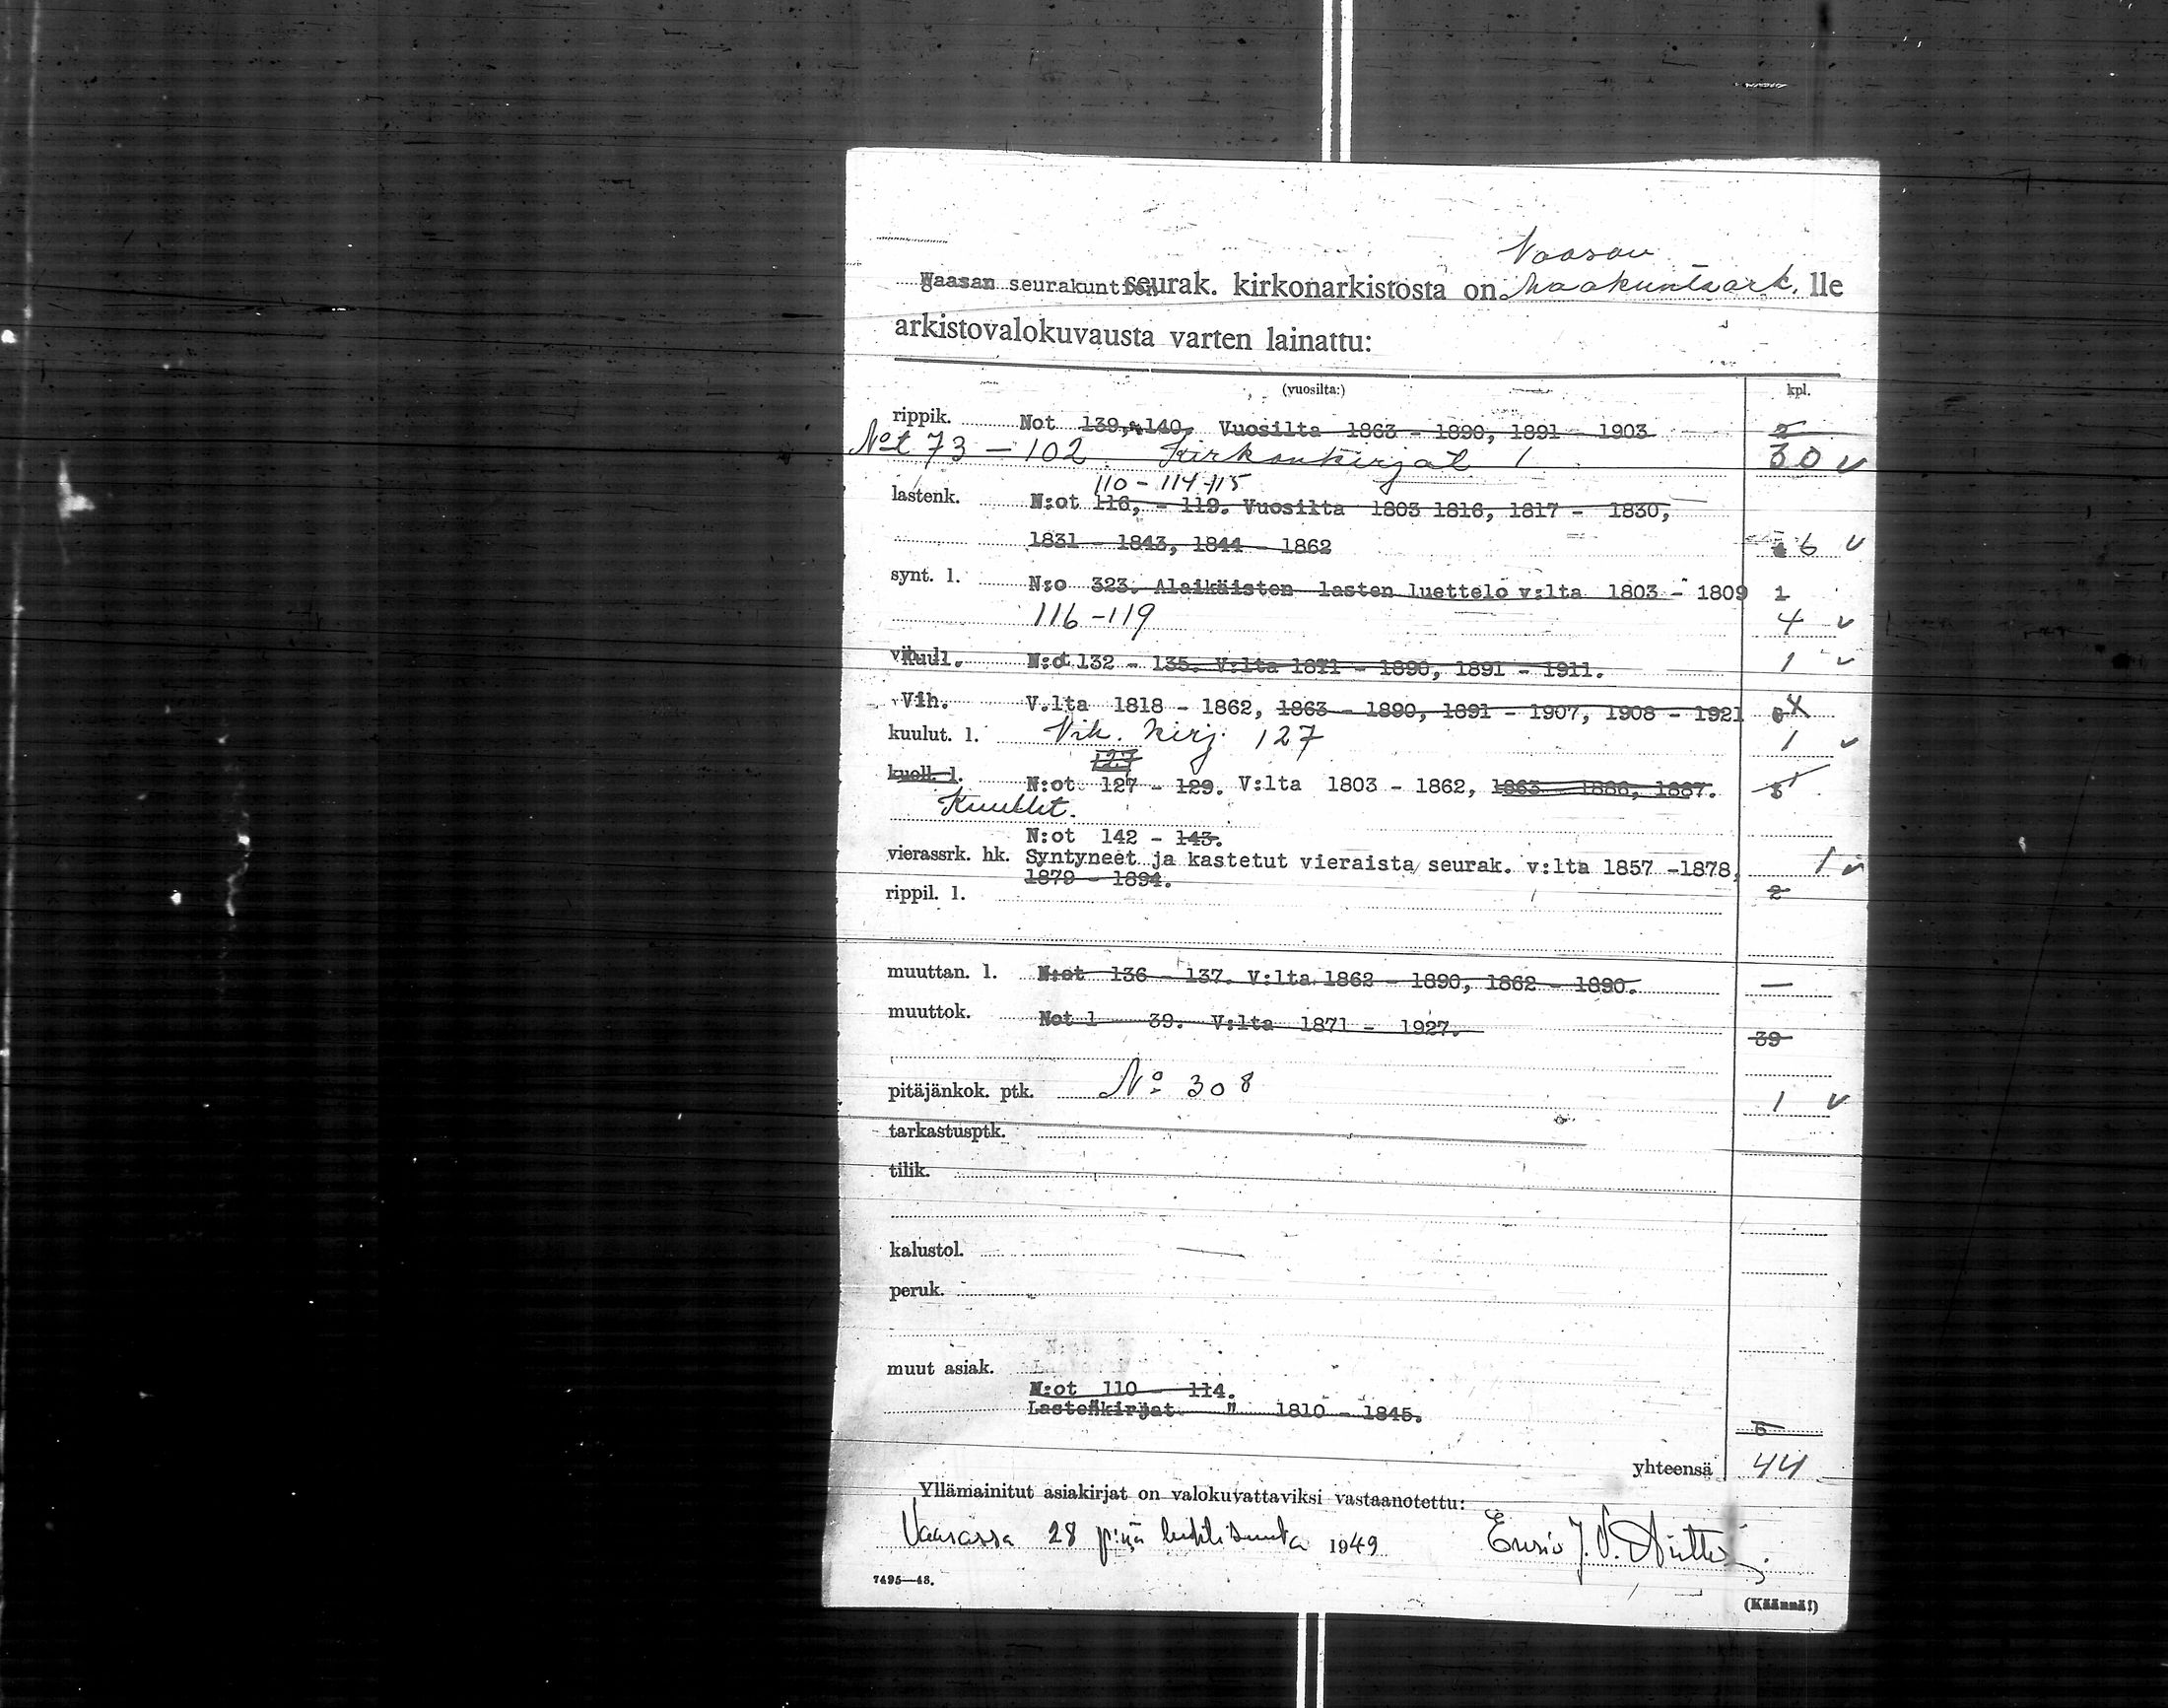 Vaasan
Waasan seurakuntien seurak. kirkonarkistosta on Maakuntaark. lle
arkistovalokuvausta varten lainattu:
(vuosilta:) kpl.
rippik. Not 139, 140, Vuosilta 1863 - 1890, 1891 - 1903 2
Not 73 - 102 Kirkonkirjat 1 30 v
110 - 114 115
lastenk. N:ot 116, - 119. Vuosilta 1803 1816, 1817 - 1830,
1831 - 1843, 1844 - 1862 6 v
synt. l. N:o 323. Alaikäisten lasten luettelo v:lta 1803 - 1809 1
116 - 119 4 v
Kuul. N:ot 132 - 135. V:lta 1871 - 1890, 1891 - 1911. 1 v
Vih. V.lta 1818 - 1862, 1863 - 1890, 1891 - 1907, 1908 - 1921
kuulut. l. Vih. kirj. 127 1 v
127
kuoll. l. N:ot 127 - 129. V:lta 1803 - 1862, 1863 - 1886, 1887.
Kuullut.
N:ot 142 - 143.
vierassrk. hk. Syntyneet ja kastetut vieraista seurak. v:lta 1857 -1878, 1 v
1879 - 1894. 2
rippil. l.
muuttan. l. N:ot 136 - 137. V:lta 1862 - 1890, 1862 - 1890. —
muuttok. Not 1 - 39. V:lta 1871 - 1927. 39
pitäjänkok. ptk. No 308 1 v
tarkastusptk.
tilik.
kalustol.
peruk.
muut asiak.
N:ot 110 - 114.
Lastenkirjat " 1810 - 1845.
5
yhteensä 44
Yllämainitut asiakirjat on valokuvattaviksi vastaanotettu:
Vaasassa 28 p:nä huhtikuuta 1949 Ensio J. V.
7495—48.
(Käännä!)